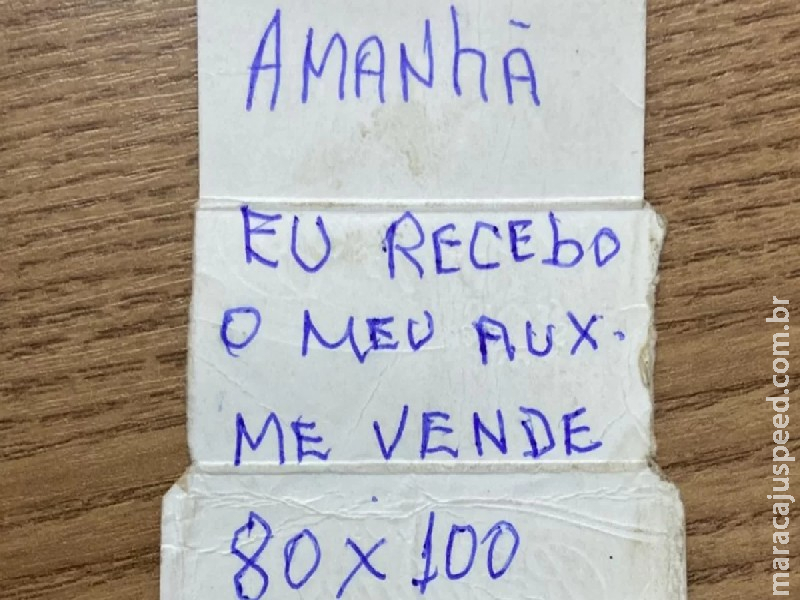 AMANhÃ
EU RECEbO
O MEU AUX.
ME VENDE
80 x 100
maracajuspeed.com.br